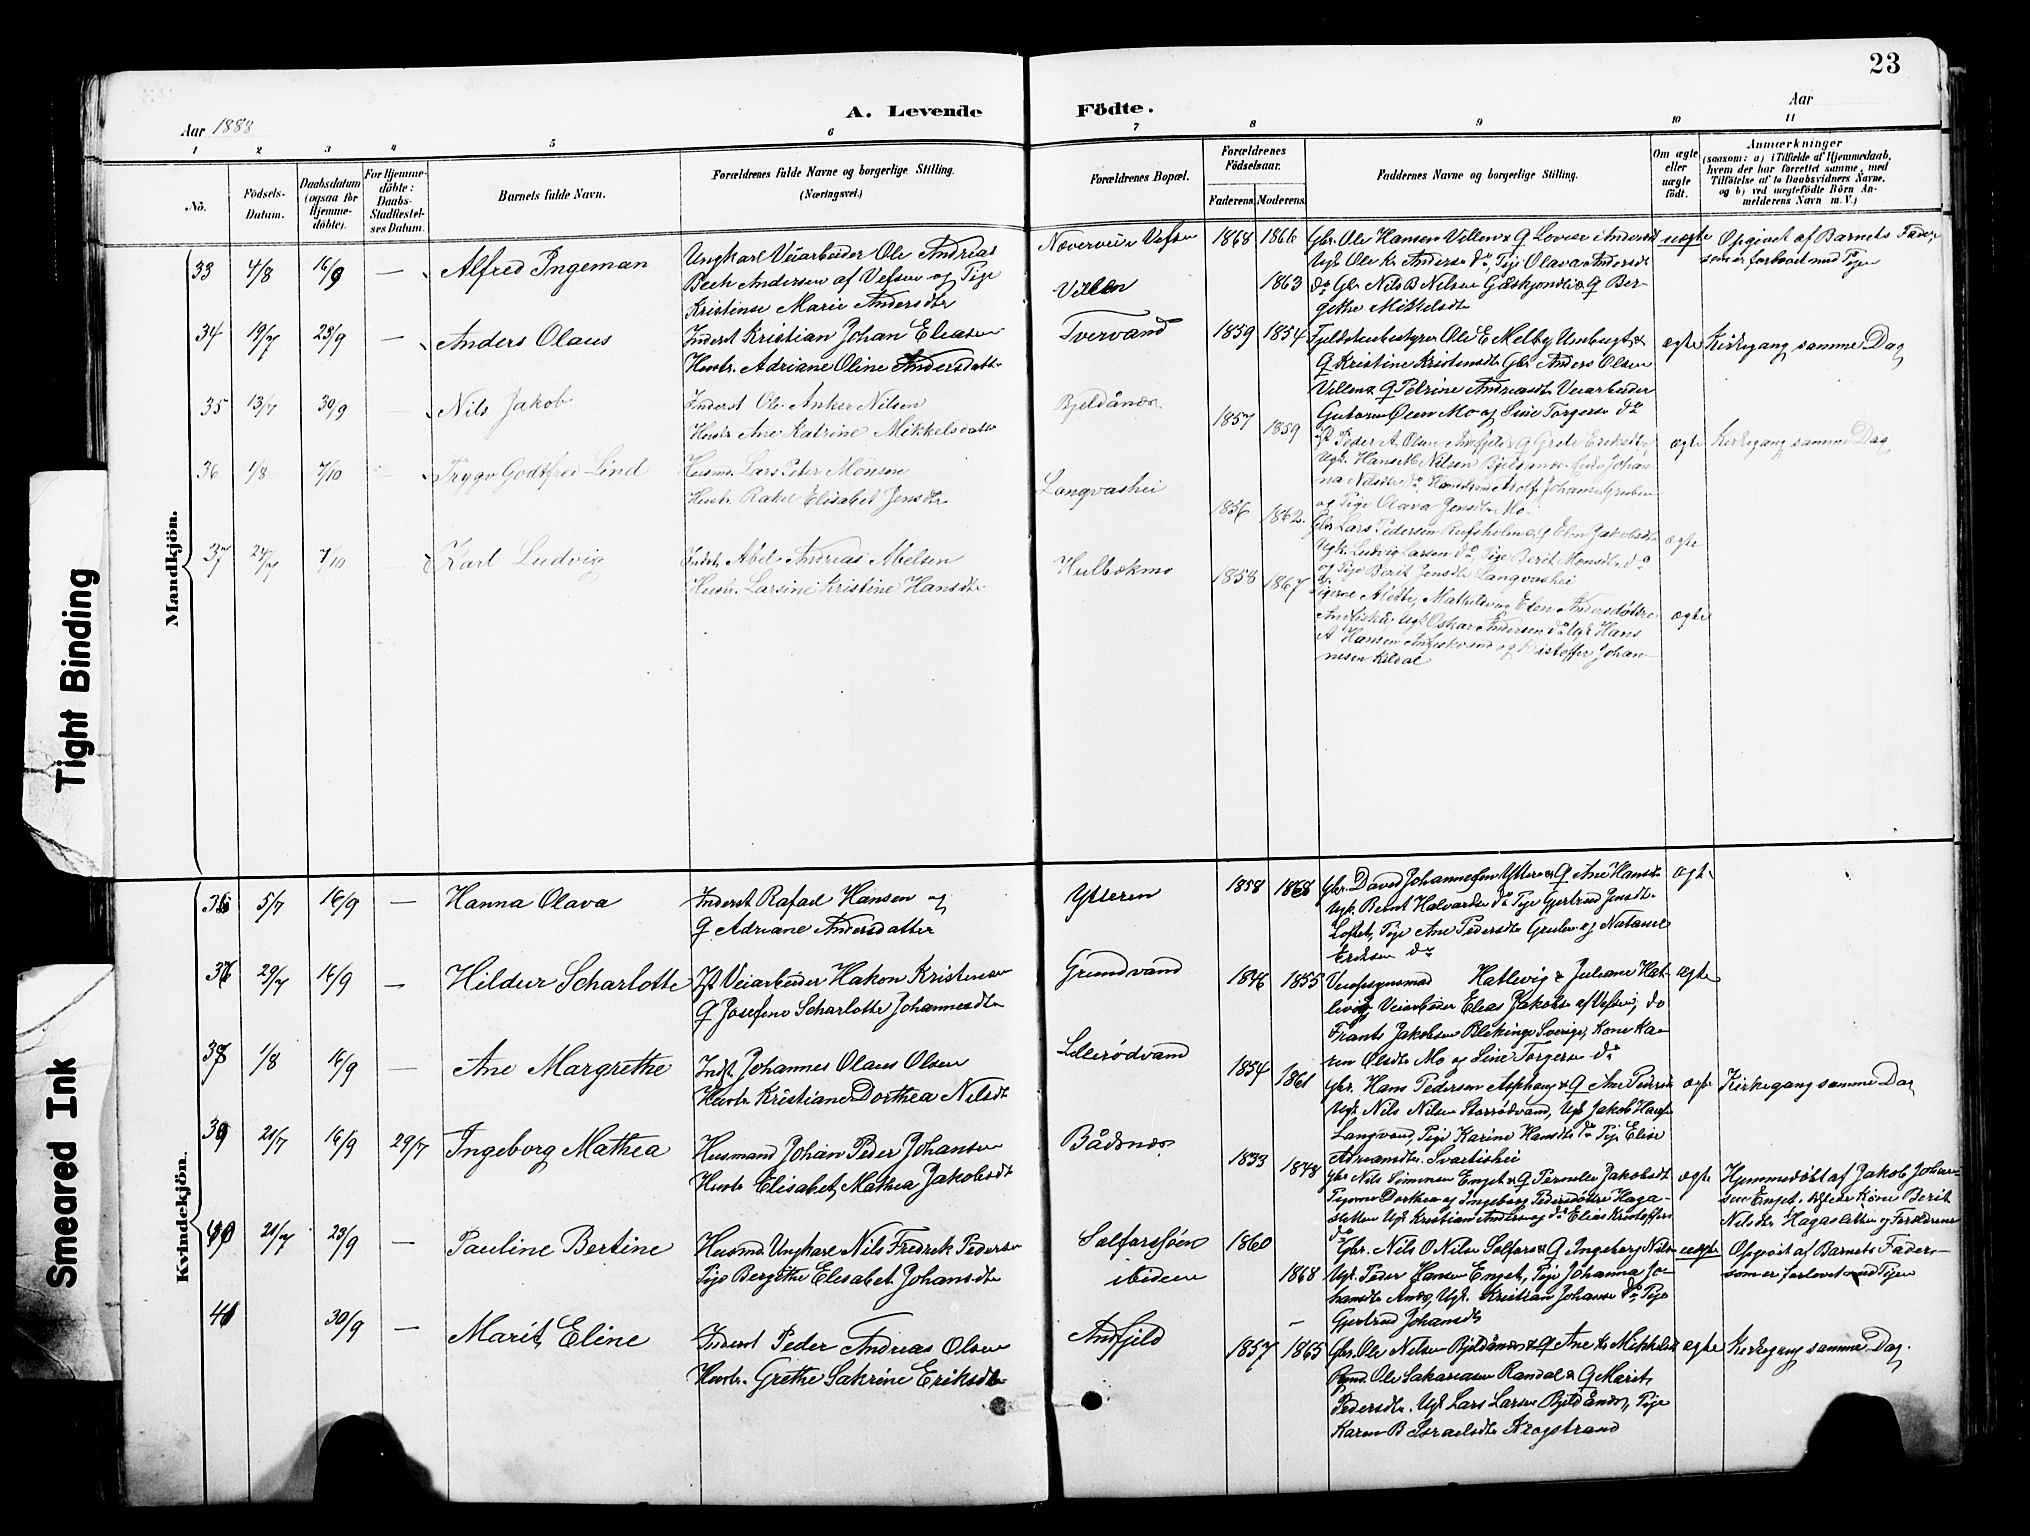 23
A. Levende Födte.
Aar 1888
Aar
1 2 3 4 5 6 7 8 9 10 11
No.
Födsels-Datum.
Daabsdatum (ogsaa for Hjemme-döbte).
For Hjemme-döbte: Daabs-Stadfæstel-ses Datum.
Barnets fulde Navn.
Forældrenes fulde Navne og borgerlige Stilling. (Næringsvei.)
Forældrenes Bopæl.
Forældrenes Födselsaar.
Faderens. Moderens.
Faddernes Navne og borgerlige Stilling.
Om ægte eller uægte födt.
Anmærkninger
(saasom: a) i Tilfælde af Hjemmedaab,
hvem der har forrettet samme, med
Tilföielse af to Daabsvidners Navne,
og b) ved uægtefödte Börn An-
melderens Navn m. V.)
Mandkjön.
33 4/8 16/9 — Alfred Ingeman
Ungkarl Veiarbeider Ole Andreas
Bech Andersen af Vefsen og Pige
Kristense Marie Andersdtr
Villen
1868 1866
1863
Gbr. Ole Hansen Villen & Q Lovise Andersdt
Ugk. Ole Kr. Andersen do, Pige Olava Andersdt
do Gbr Nils B Nilsen Q Ber-
githe Mikkelsdt
uægte
Opgivet af Barnets Fader,
som er forlovet med Pigen
34 19/7 23/9 — Anders Olaus
Inderst Kristian Johan Eliasen
Hustr. Adriane Oline Andersdatter
Tvervand
1859 1854
Fjeldstuebestyrer Ole E Melby Umbugt &
Q Kristine Kristensdtr Gbr Anders Olsen
Villen & Q Petrine Andreasdtr Veiarbeider
Gustav Olsen Mo og Sine Torgersen do
ægte
Kirkegang samme Dag
35 13/7 30/9 — Nils Jakob
Inderst Ole Anker Nilsen
Hustr Ane Katrine Mikkelsdatter
Bjeldånes
1857 1859
Peder A Olsen Andfjeld & Q Grete Eriksdtr,
ægte
Kirkegang samme Dag
36 1/8 7/10 — Trygv Godtfrei Lind
Husm. Lars Peter Monsen
Hustr Rakel Elisabet Jensdtr
Langvashei
1856 1862
og Pige Olava Jensdtr Mo.
Gbr Lars Pedersen Q Elen Jakobsdtr
Ugk. Ludvig Larsen do, Pige Berit Monsdtr do
og Pige Berit Jensdtr Langvashei
ægte
37 24/7 7/10 — Karl Ludvig
Indst Abel Andreas Abelsen
Hustr. Larsine Kristine Hansdtr
Hulbækmo
1858 1867
Pigerne Alette, Mathilde og Elen Andersdöttre
Ugk Oskar Andersen do Ugk Hans
A Hansen og Kristoffer Johan-
nesen Kildal
ægte
Kvindekjön.
36 5/7 16/9 — Hanna Olava
Inderst Rafael Hansen og
Q Adriane Andersdatter
Ytteren
1858 1868
Gbr. David Johannesen Ytteren & Q Ane Hansdt
Ugk. Bernt Halvardsen do Pige Gjertrud Jensdt.
Loftet, Pige Ane Pedersdtr Gruben og Natanel
Eriksen do
ægte
37 29/7 16/9 — Hildur Scharlotte
Jst Veiarbeider Hakon Kristensen
Q Josefine Scharlotte Johannesdtr
Grundvand
1846 1855
Veiopsynsmand Hatlevig & Juliane Hat-
levig, Veiarbeider Elias Jakobsen af Vefsen, do
Frants Jakobsen Blekinge Sverige, Kone Ka-
ren Olsdtr Mo og Sine Torgersen do
ægte
38 1/8 16/9 — Ane Margrethe
Indst. Johannes Olaus Olsen
Hustr Kristiane Dorthea Nilsdt
Lillerödvand
1854 1861
Gbr. Hans Pedersen Asphaug & Q Ane Pedersdt
Ugk. Nils Nilsen Storrödvand, Ugk Jakob Hansen
Langvand, Pige Karine Hansdtr do Pige Elise
Adriansdtr. Svartishei
ægte
Kirkegang samme Dag
39 21/7 16/9 29/7 Ingeborg Mathea
Husmand Johan Peder Johansen
Hustr Elisabet Mathea Jakobsdt
Bådsnes
1833 1848
Gbr Nils Simonsen Enget & Q Pernele Jakobsdt
Pigerne Dorthea og Ingeborg Pedersdöttre Haga-
sletten Ugk Kristian Andersen og do Elias Kristoffers
do
ægte
Hjemmedöbt af Jakob Johan-
sen Enget. Kone Berit
Nilsdtr Hagasletten og Forældrene
40 21/7 23/9 — Pauline Bertine
Husmd. Ungkarl Nils Fredrik Pedersen
Pige Bergithe Elisabet Johansdtr
Solforssjöen
ibidem
1860
1868
Gbr. Nils O Nilsen Solfors & Q Ingeborg Nilsdt
Ugk. Peder Hansen Enget, Pige Johanna Jo-
hansdtr Ugk. Kristian Johansen do Pige
Gjertrud Johansdtr
uægte
Opgivet af Barnets Fader
som er forlovet med Pigen
41 30/9 — Marit Eline
Inderst Peder Andreas Olsen
Hustr. Grethe Sakrine Eriksdtr
Andfjeld
1857 1865
Gbr. Ole Nilsen Bjeldånes & Q Ane Kr Mikkelsdt
Ole Sakariasen Randal & Q Marit
Pedersdtr. Ugk Lars Larsen Bjeldånes, Pige
Karen B Israelsdtr Krogstrand
ægte
Kirkegang samme Dag.
Tight Binding
Smeared Ink